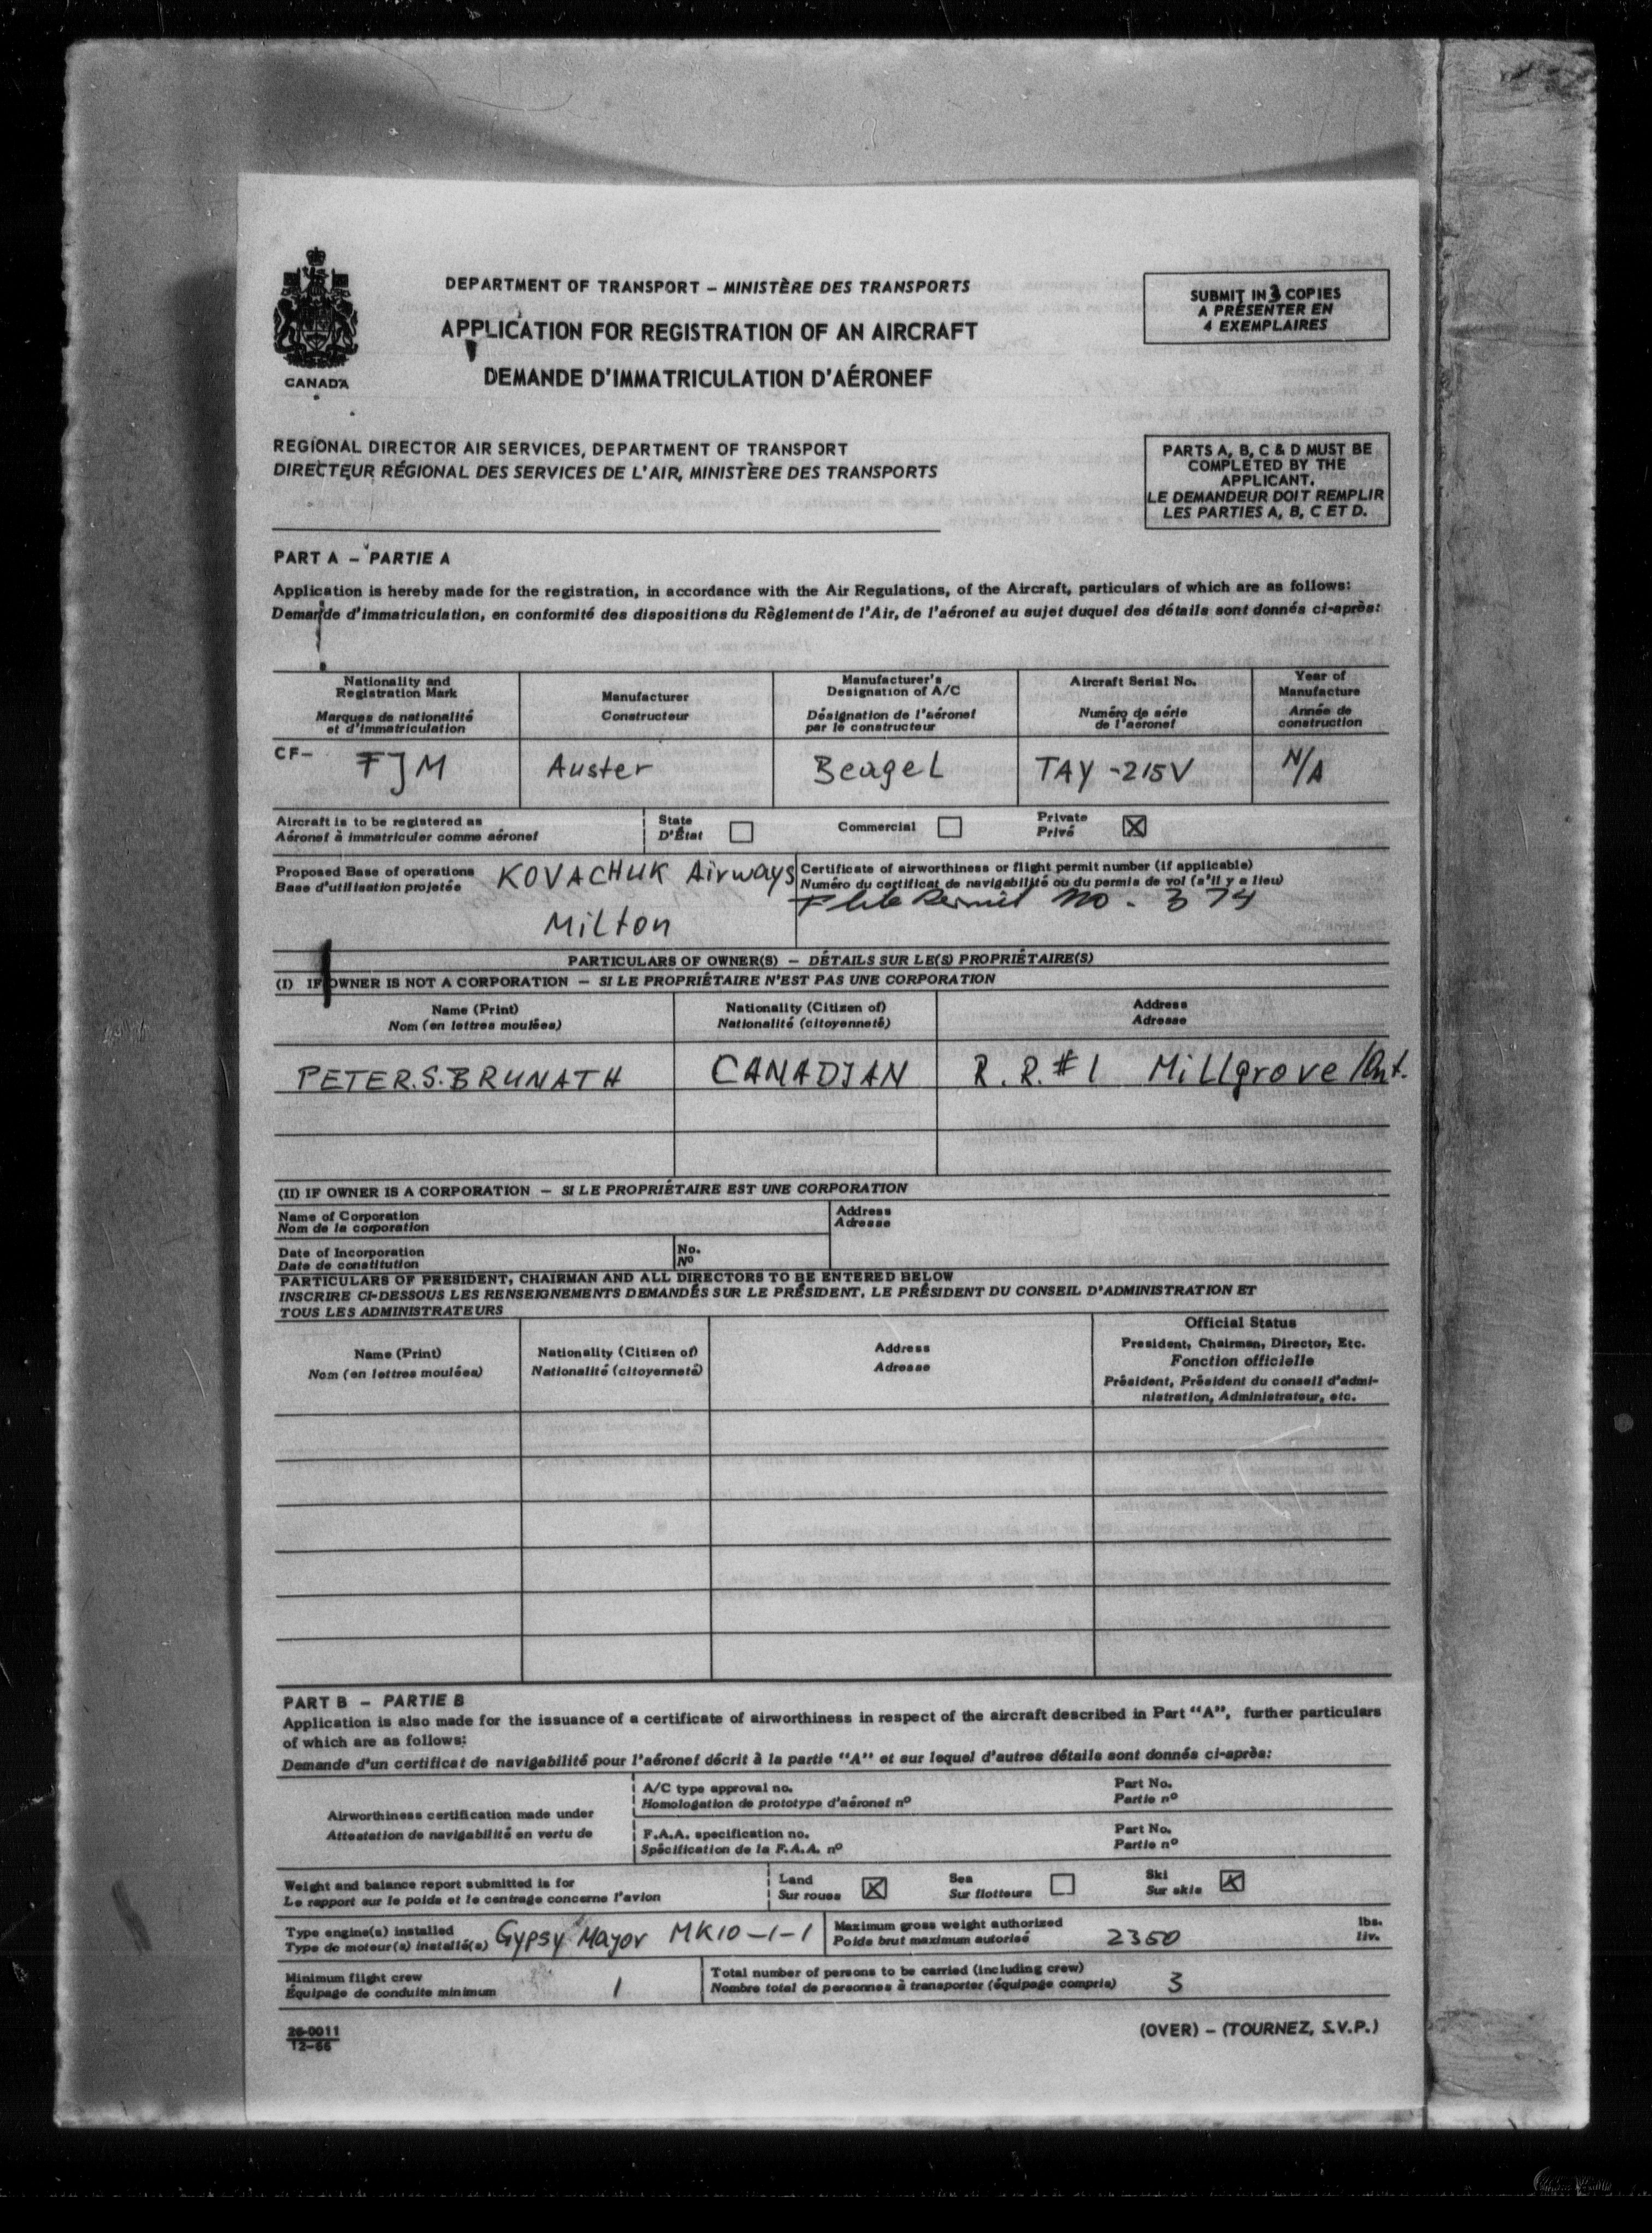 DEPARTMENT OF TRANSPORT – MINISTÈRE DES TRANSPORTS
APPLICATION FOR REGISTRATION OF AN AIRCRAFT
DEMANDE D'IMMATRICULATION D'AÉRONEF
CANADA
SUBMIT IN 3 COPIES
A PRÉSENTER EN
4 EXEMPLAIRES
REGIONAL DIRECTOR AIR SERVICES, DEPARTMENT OF TRANSPORT
DIRECTEUR RÉGIONAL DES SERVICES DE L'AIR, MINISTÈRE DES TRANSPORTS
PARTS A, B, C & D MUST BE
COMPLETED BY THE
APPLICANT.
LE DEMANDEUR DOIT REMPLIR
LES PARTIES A, B, C ET D.
PART A – PARTIE A
Application is hereby made for the registration, in accordance with the Air Regulations, of the Aircraft, particulars of which are as follows:
Demande d'immatriculation, en conformité des dispositions du Règlement de l'Air, de l'aéronef au sujet duquel des détails sont donnés ci-après:
Nationality and
Registration Mark
Marques de nationalité
et d'immatriculation
Manufacturer
Constructeur
Manufacturer's
Designation of A/C
Désignation de l'aéronef
par le constructeur
Aircraft Serial No.
Numéro de série
de l'aéronef
Year of
Manufacture
Année de
construction
CF– FJM Auster Beagel TAY-215V N/A
Aircraft is to be registered as
Aéronef à immatriculer comme aéronef
State
D'État
Commercial
Private
Privé
Proposed Base of operations KOVACHUK Airways
Base d'utilisation projetée
Milton
Certificate of airworthiness or flight permit number (if applicable)
Numéro du certificat de navigabilité ou du permis de vol (s'il y a lieu)
Permit No. 374
PARTICULARS OF OWNER(S) – DÉTAILS SUR LE(S) PROPRIÉTAIRE(S)
(I) IF OWNER IS NOT A CORPORATION – SI LE PROPRIÉTAIRE N'EST PAS UNE CORPORATION
Name (Print)
Nom (en lettres moulées)
Nationality (Citizen of)
Nationalité (citoyenneté)
Address
Adresse
PETER.S.BRUNATH CANADIAN R.R.#1 Millgrove Ont.
(II) IF OWNER IS A CORPORATION – SI LE PROPRIÉTAIRE EST UNE CORPORATION
Name of Corporation
Nom de la corporation
Address
Adresse
Date of Incorporation
Date de constitution
No.
Nº
PARTICULARS OF PRESIDENT, CHAIRMAN AND ALL DIRECTORS TO BE ENTERED BELOW
INSCRIRE CI-DESSOUS LES RENSEIGNEMENTS DEMANDÉS SUR LE PRÉSIDENT, LE PRÉSIDENT DU CONSEIL D'ADMINISTRATION ET
TOUS LES ADMINISTRATEURS
Name (Print)
Nom (en lettres moulées)
Nationality (Citizen of)
Nationalité (citoyenneté)
Address
Adresse
Official Status
President, Chairman, Director, Etc.
Fonction officielle
Président, Président du conseil d'admi-
nistration, Administrateur, etc.
PART B – PARTIE B
Application is also made for the issuance of a certificate of airworthiness in respect of the aircraft described in Part "A", further particulars
of which are as follows:
Demande d'un certificat de navigabilité pour l'aéronef décrit à la partie "A" et sur lequel d'autres détails sont donnés ci-après:
Airworthiness certification made under
Attestation de navigabilité en vertu de
A/C type approval no.
Homologation de prototype d'aéronef nº
Part No.
Partie nº
F.A.A. specification no.
Spécification de la F.A.A. nº
Part No.
Partie nº
Weight and balance report submitted is for
Le rapport sur le poids et le centrage concerne l'avion
Land
Sur roues
Sea
Sur flotteurs
Ski
Sur skis
Type engine(s) installed
Type de moteur(s) installé(s) Gypsy Mayor MK10-1-1
Maximum gross weight authorized
Poids brut maximum autorisé 2350
lbs.
liv.
Minimum flight crew
Équipage de conduite minimum 1
Total number of persons to be carried (including crew)
Nombre total de personnes à transporter (équipage compris) 3
26-0011
12-66
(OVER) – (TOURNEZ, S.V.P.)